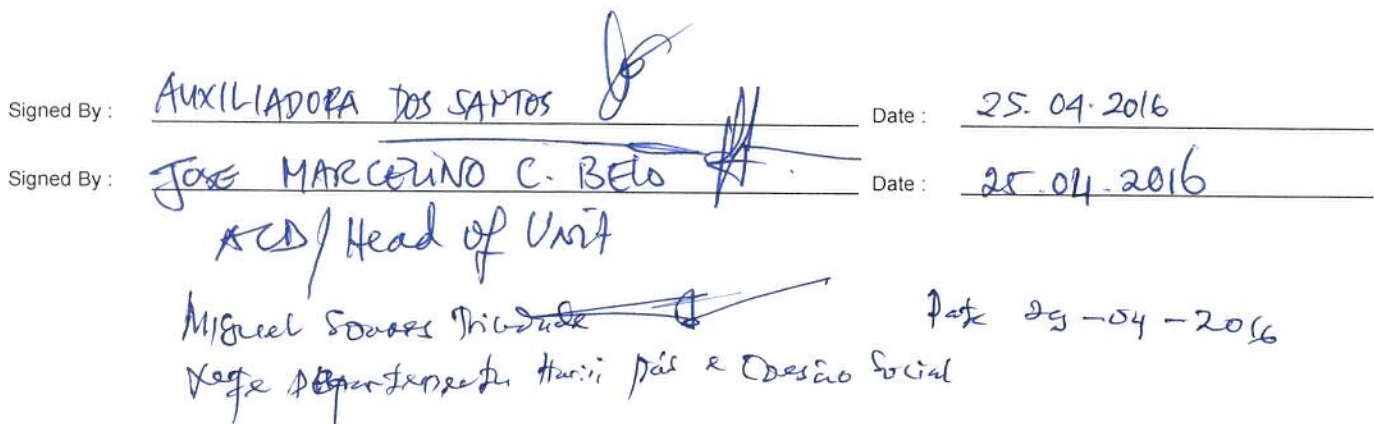 Signed By : AUXILIADORA DOS SANTOS Date : 25.04.2016
Signed By : JOSE MARCELINO C. BELO Date : 25.04.2016
ACD/Head of Unit
Miguel Soares Trindade Date 29-04-2016
Xefe Departementu Harii Pás e Coesão Social